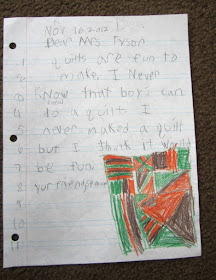 Nov 16 2012
Dear Mrs Tyson
1 quilts are fun to
2 make. I Never
3 Know that boy's can
4 do a quilt. I
5 never made a quilt
6 but I think it would
7 be fun.
8 your friend
9
10
11